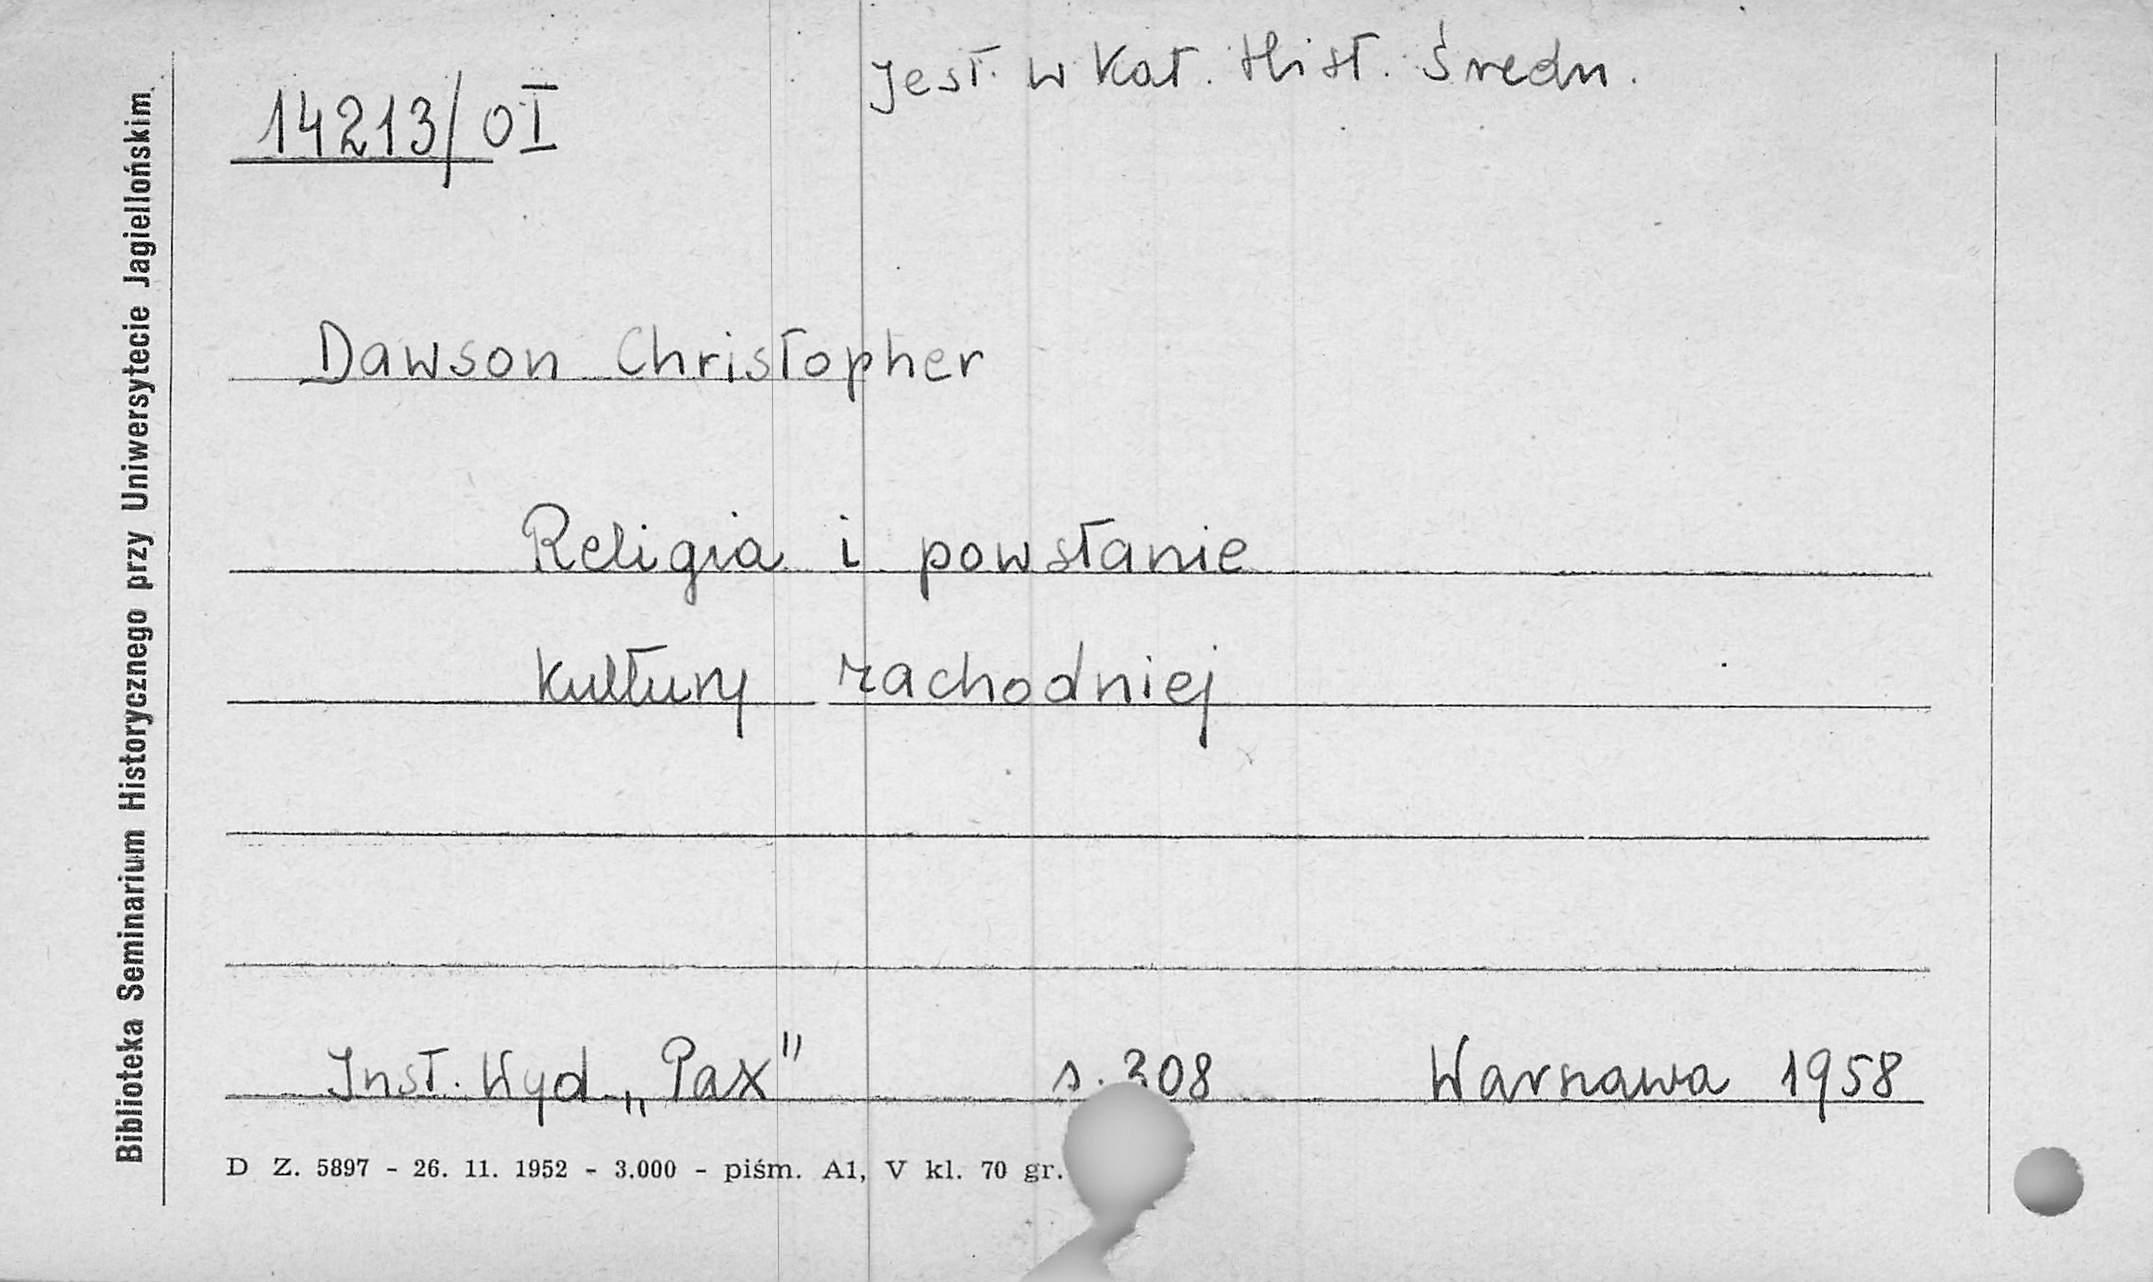 Jest w Kat. Hist. Średn.
14213/OI
Dawson Christopher
Religia i powstanie
kultury zachodniej
Inst. Wyd „Pax" s. 308 Warszawa 1958
D Z. 5897 - 26. 11. 1952 - 3.000 - piśm. A1, V kl. 70 gr.
Biblioteka Seminarium Historycznego przy Uniwersytecie Jagiellońskim